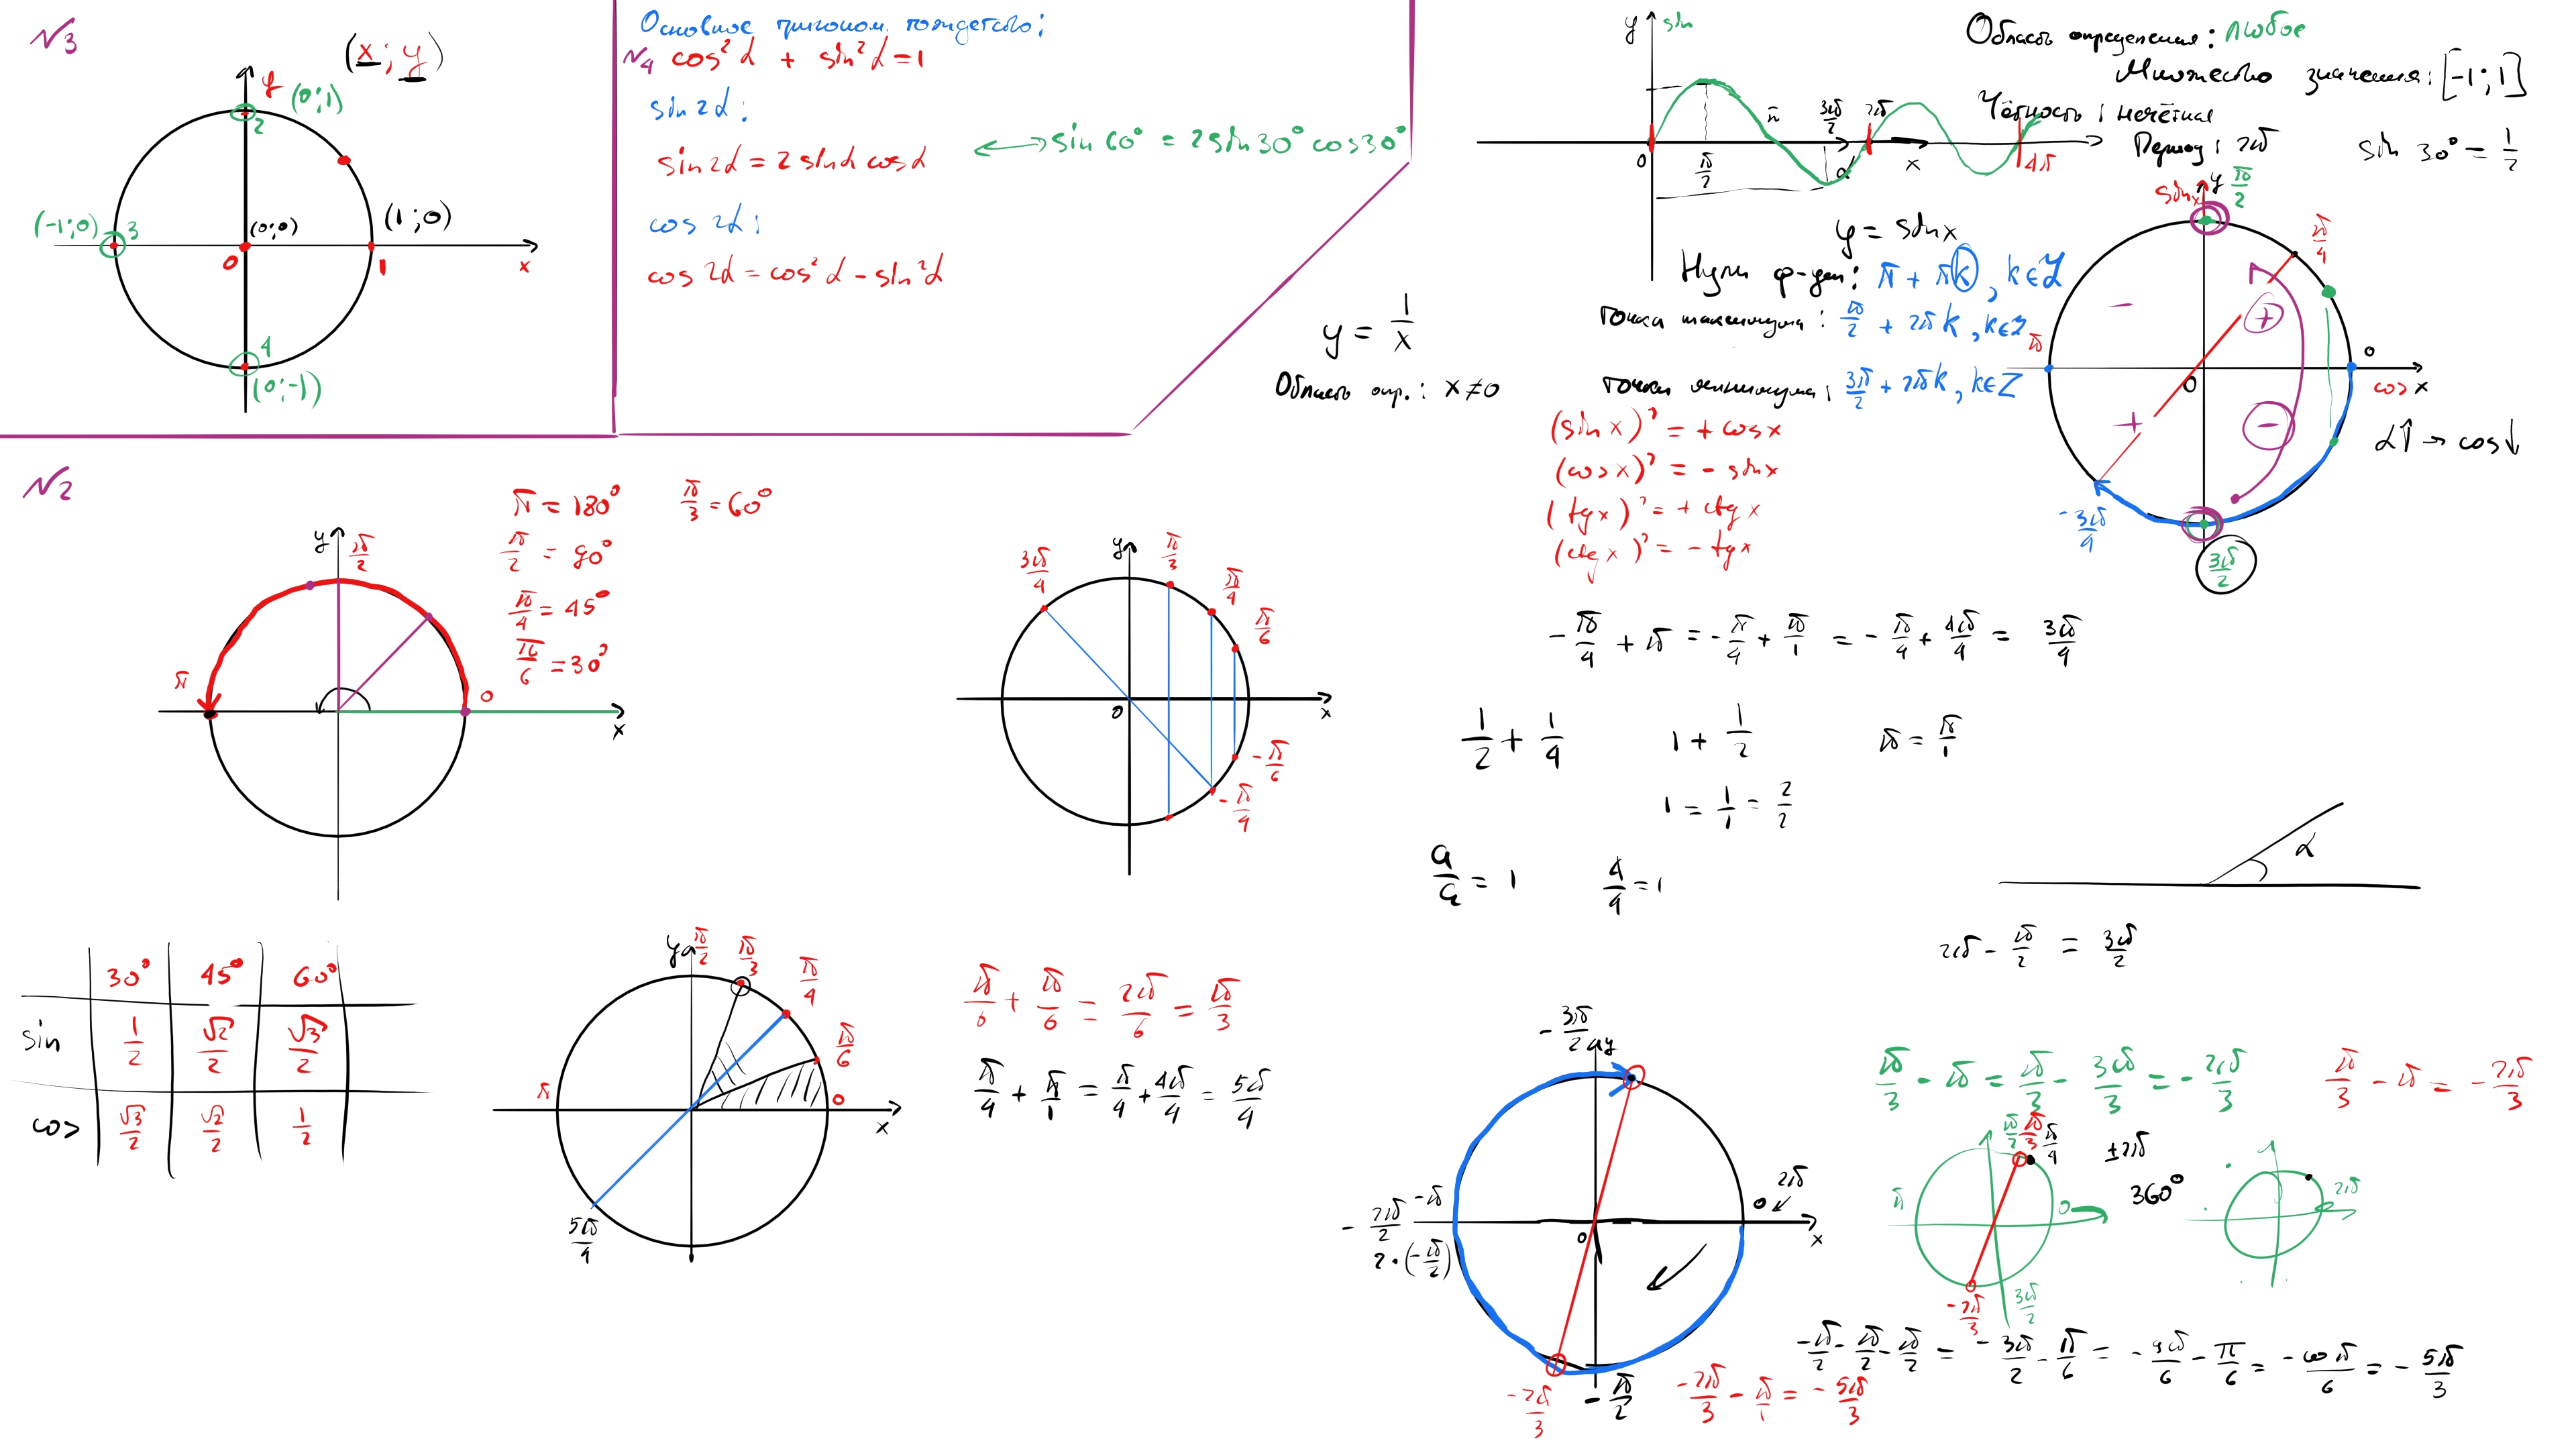 N3
(x; y)
y
(0;1)
2
(-1;0)
3
(0;0)
(1;0)
0
1
x
4
(0;-1)
Основное тригоном. тождество:
N4 cos²α + sin²α = 1
sin 2α:
sin 2α = 2 sin α cos α
sin 60° = 2 sin 30° cos 30°
cos 2α:
cos 2α = cos²α - sin²α
y = 1/x
Область опр.: x ≠ 0
y sin
0 π/2 π 3π/2 2π 4π
α x
y = sin x
Область определения: любое
Множество значения: [-1; 1]
Чётность: нечётная
Период: 2π
sin 30° = 1/2
Нули ф-ции: π + πk, k ∈ Z
точка максимума: π/2 + 2πk, k ∈ Z
точки минимума: 3π/2 + 2πk, k ∈ Z
(sin x)' = + cos x
(cos x)' = - sin x
(tg x)' = + ctg x
(ctg x)' = - tg x
sin x y π/2
π/4
- +
π 0
0 cos x
+ -
-3π/4
3π/2
α↑ → cos↓
-π/4 + π = -π/4 + π/1 = -π/4 + 4π/4 = 3π/4
1/2 + 1/4
1 + 1/2
π = π/1
1 = 1/1 = 2/2
a/a = 1
4/4 = 1
α
2π - π/2 = 3π/2
N2
π = 180°
π/3 = 60°
π/2 = 90°
π/4 = 45°
π/6 = 30°
y π/2
π 0
x
y
3π/4 π/3 π/4 π/6
0 x
-π/6
-π/4
30° 45° 60°
sin 1/2 √2/2 √3/2
cos √3/2 √2/2 1/2
y π/2 π/3 π/4 π/6
π 0
x
5π/4
π/6 + π/6 = 2π/6 = π/3
π/4 + π/1 = π/4 + 4π/4 = 5π/4
-3π/2 y
-2π/2 -π
2·(-π/2)
0 2π
0 x
-2π/3 -π/2
-2π/3 - π/1 = -5π/3
π/3 - π = π/3 - 3π/3 = -2π/3
π/3 - π = -2π/3
π/2 π/3 π/4
±2π
360°
π 0
2π
-2π/3
3π/2
-π/2 - π/2 - π/2 = -3π/2 - π/6 = -9π/6 - π/6 = -10π/6 = -5π/3